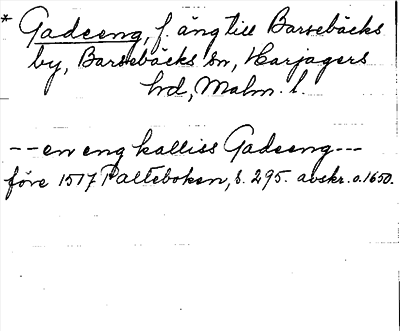 * Gadeeng, f. äng till Barsebäcks
by, Barsebäcks sn, Harjagers
hd, Malm. l.
-- en eng kalliss Gadeeng ---
före 1517 Palteboken, s. 295. avskr. o. 1650.